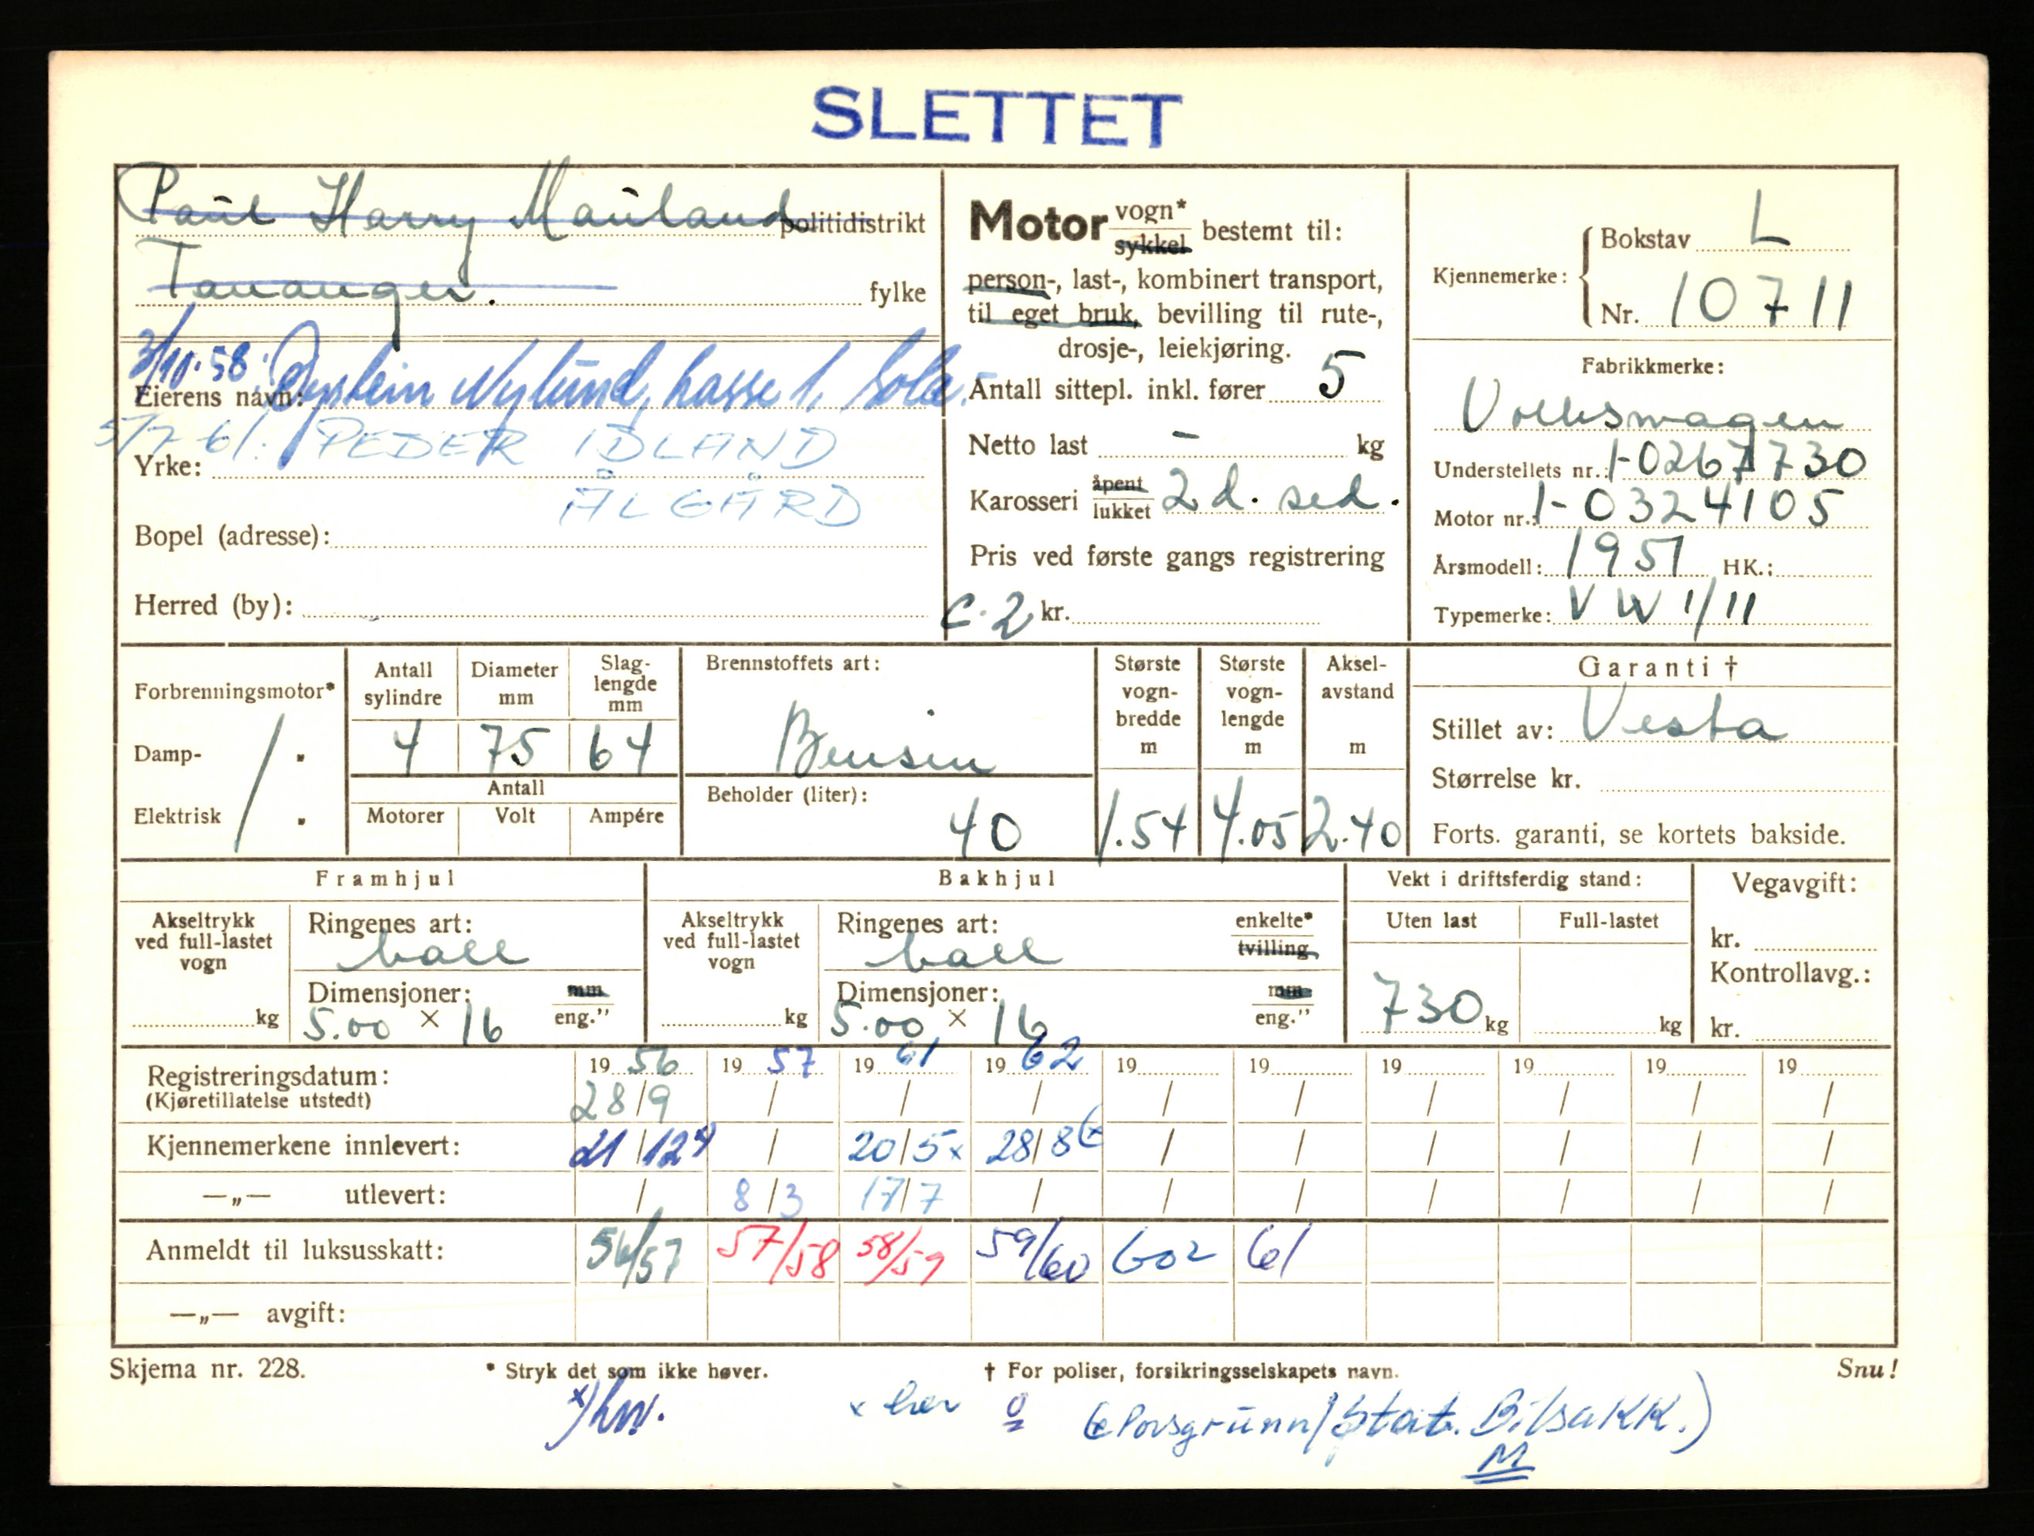 SLETTET
Paul Harry Mauland politidistrikt
Tananger. fylke
3/10.58: Øystein Nylund, kasse 1, Sola.
Eierens navn:
5/7-61: PEDER IDLAND
Yrke:
ÅLGÅRD
Bopel (adresse):
Herred (by):
Motor vogn* sykkel bestemt til:
person-, last-, kombinert transport,
til eget bruk, bevilling til rute-,
drosje-, leiekjøring.
Antall sittepl. inkl. fører 5
Netto last - kg
Karosseri åpent lukket 2 d. sed.
Pris ved første gangs registrering
C.2 kr.
Kjennemerke: Bokstav L
Nr. 10711
Fabrikkmerke:
Volkswagen
Understellets nr.: 1-0267730
Motor nr.: 1-0324105
Årsmodell: 1951 HK.:
Typemerke: VW 1/11
Forbrenningsmotor*
Damp- "
Elektrisk "
Antall sylindre Diameter mm Slag-lengde mm
4 75 64
Antall
Motorer Volt Ampére
Brennstoffets art:
Bensin
Beholder (liter):
40
Største vogn-bredde m Største vogn-lengde m Aksel-avstand m
1.54 4.05 2.40
Garanti †
Stillet av: Vesta
Størrelse kr.
Forts. garanti, se kortets bakside.
Framhjul
Akseltrykk ved full-lastet vogn
kg
Ringenes art:
ball
Dimensjoner: mm
5.00 × 16 eng."
Bakhjul
Akseltrykk ved full-lastet vogn
kg
Ringenes art: enkelte*
ball tvilling
Dimensjoner: mm
5.00 × 16 eng."
Vekt i driftsferdig stand:
Uten last Full-lastet
730 kg kg
Vegavgift:
kr.
Kontrollavg.:
kr.
Registreringsdatum: 19 56 19 57 19 61 19 62 19 19 19 19 19 19
(Kjøretillatelse utstedt) 28/9 / / / / / / / / /
Kjennemerkene innlevert: 21/12 x) / 20/5 x 28/8 / / / / / /
—„— utlevert: / 8/3 17/7 / / / / / / /
Anmeldt til luksusskatt: 56/57 57/58 58/59 59/60 602 61
—„— avgift:
Skjema nr. 228. * Stryk det som ikke høver. † For poliser, forsikringsselskapets navn. Snu!
x) x her (Porsgrunn/Stat. Bilsakk.)
M